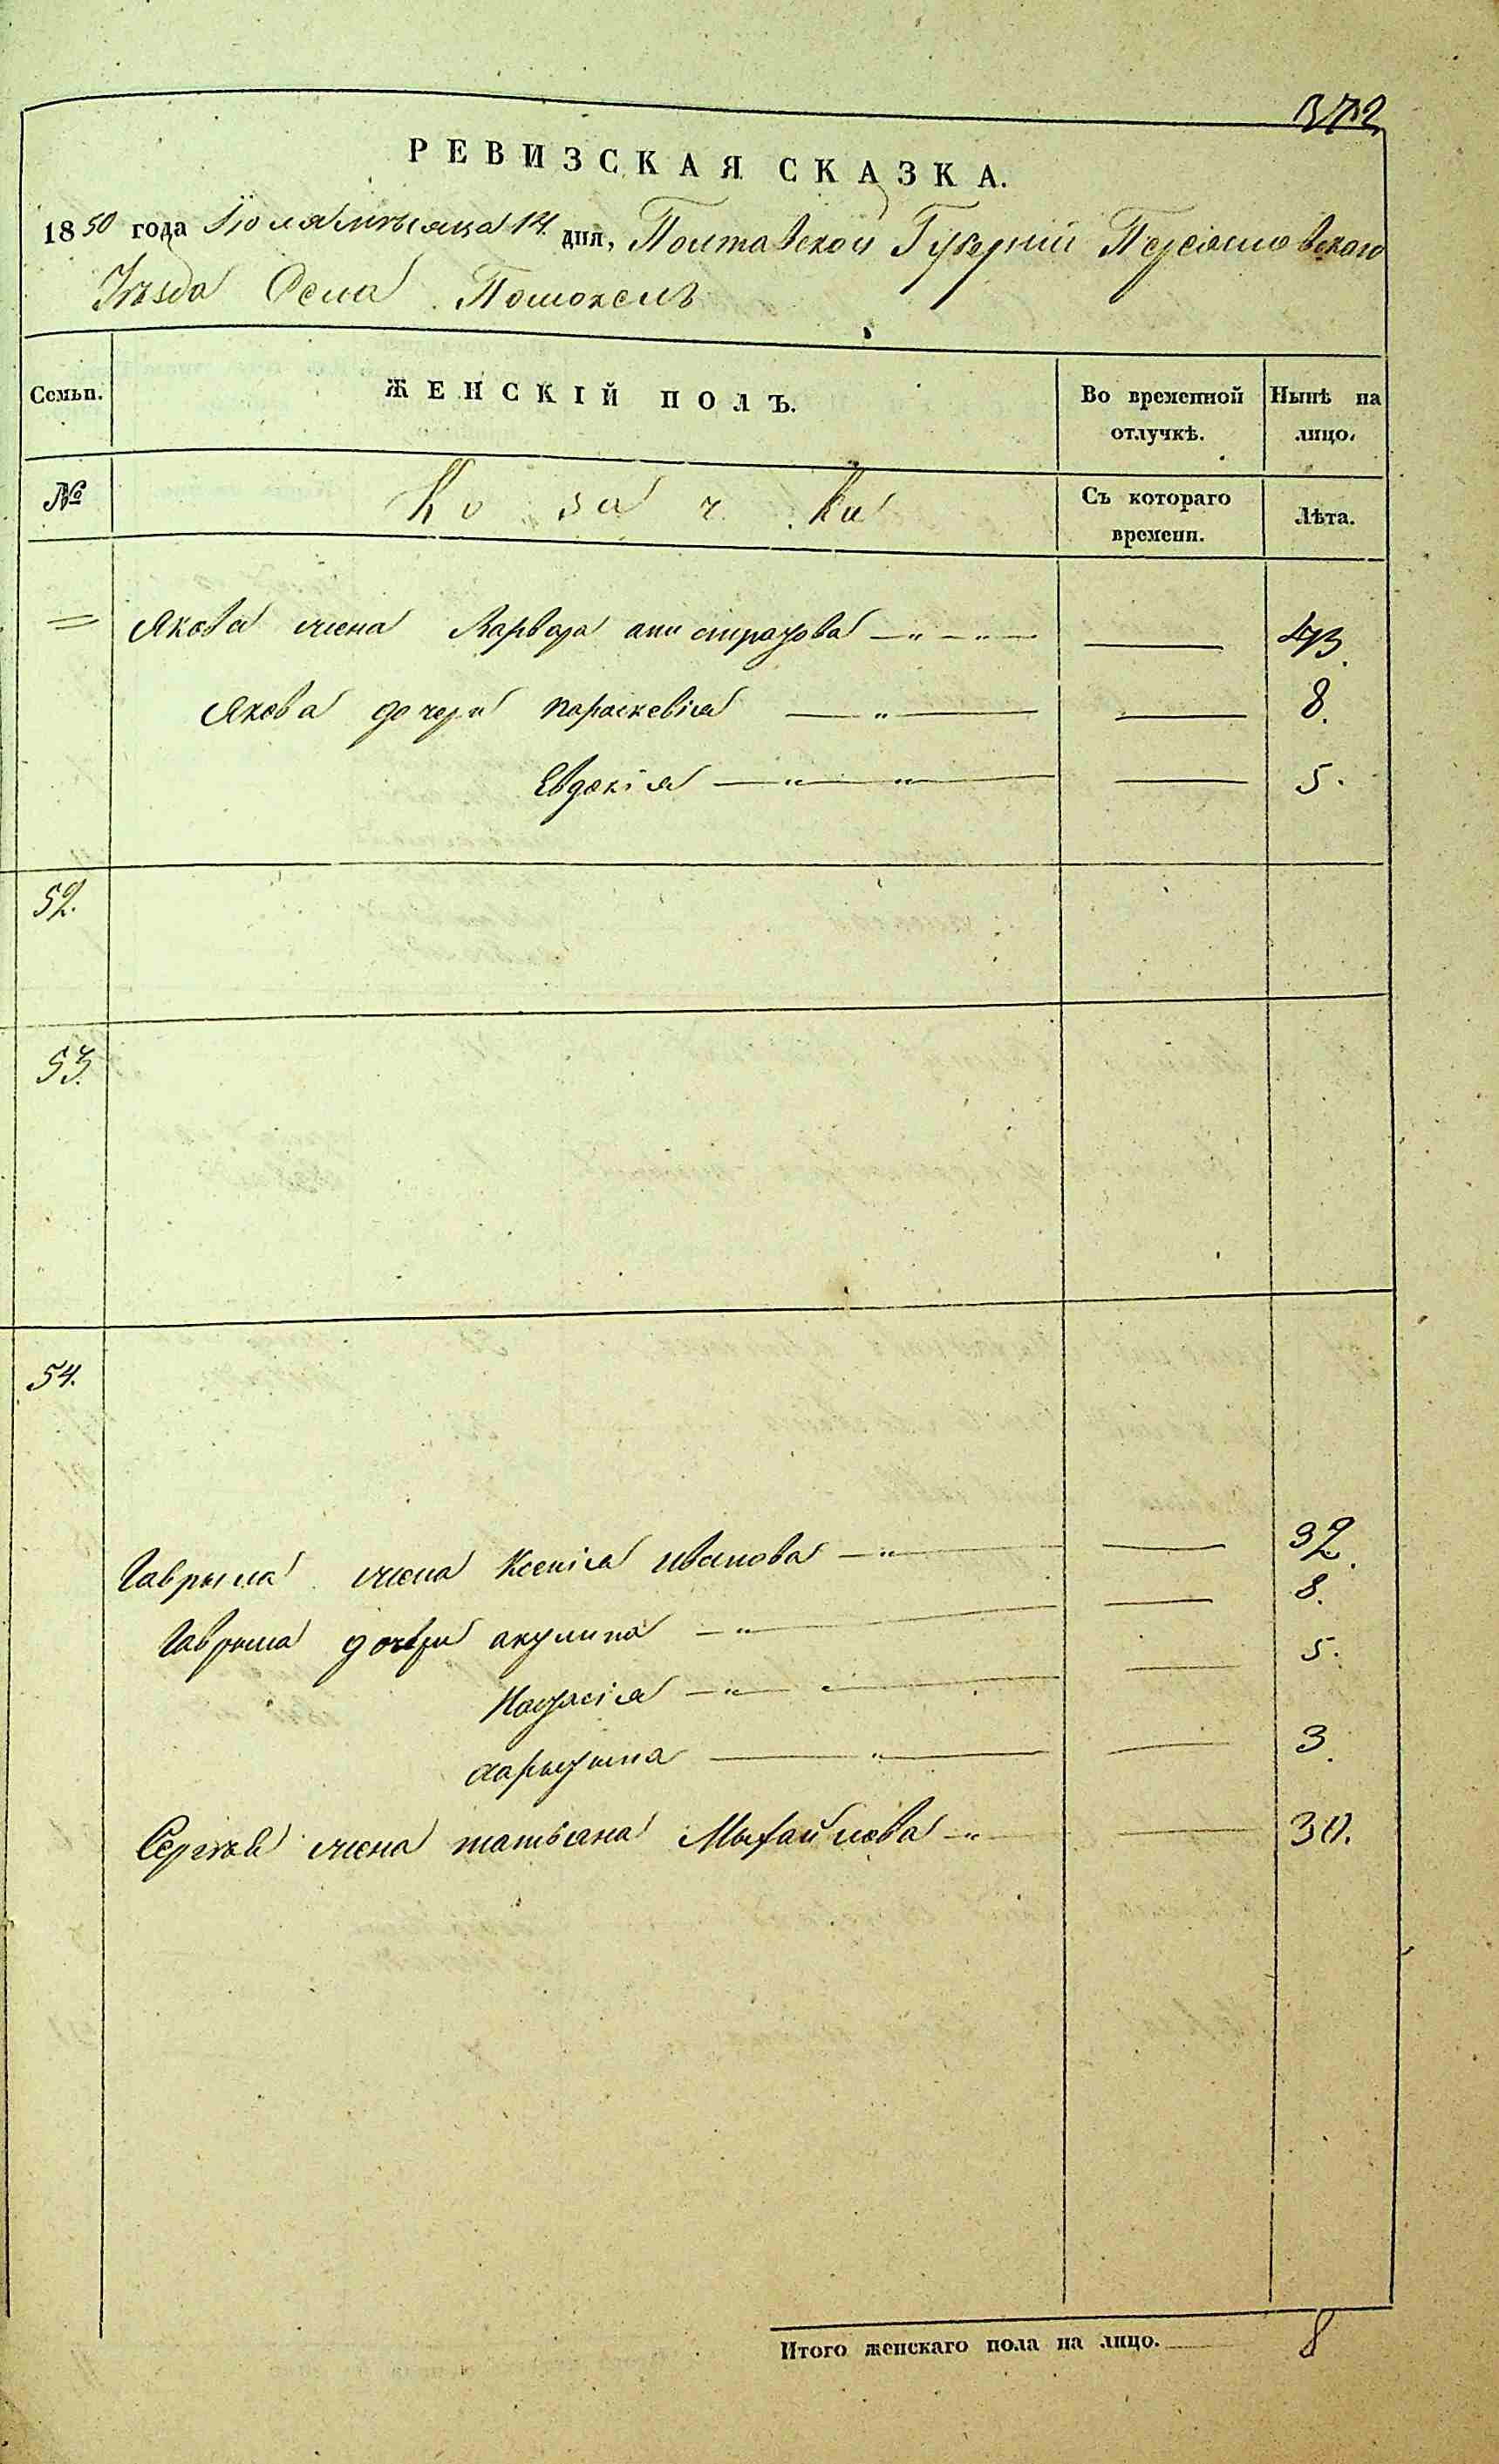 372
РЕВИЗСКАЯ СКАЗКА.
1850 года Іюля мѣсяца 14. дня, Полтавской Губерніи Переясловскаго
Уѣзда Села Помоклъ
Семьи. ЖЕНСКІЙ ПОЛЪ. Во временной отлучкѣ. Нынѣ на лицо.
№ Козачки Съ котораго времени. Лѣта.
= Якова жена Варвара алистратова 43.
Якова дочери параскевія 8.
Евдокія 5.
52.
53.
54.
Гаврыла жена Ксенія иванова 32.
Гаврыла дочери акулина 8.
Настасія 5.
харытына 3.
Сергѣя жена татьяна Мыхайлова 30.
Итого женскаго пола на лицо. 8